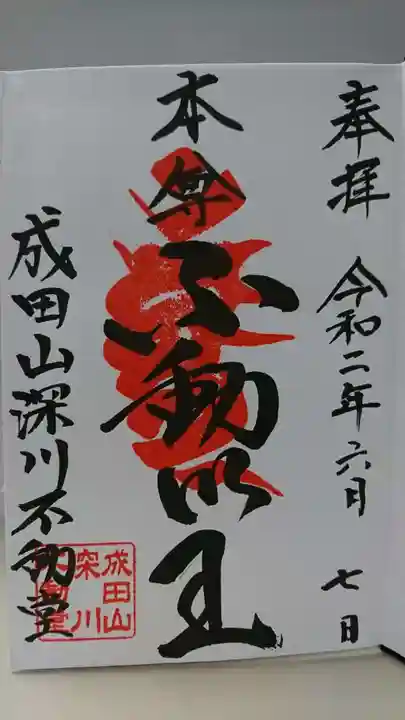 奉拝 令和二年六月七日
本尊不動明王
成田山深川不動堂
成田山
深川
不動堂